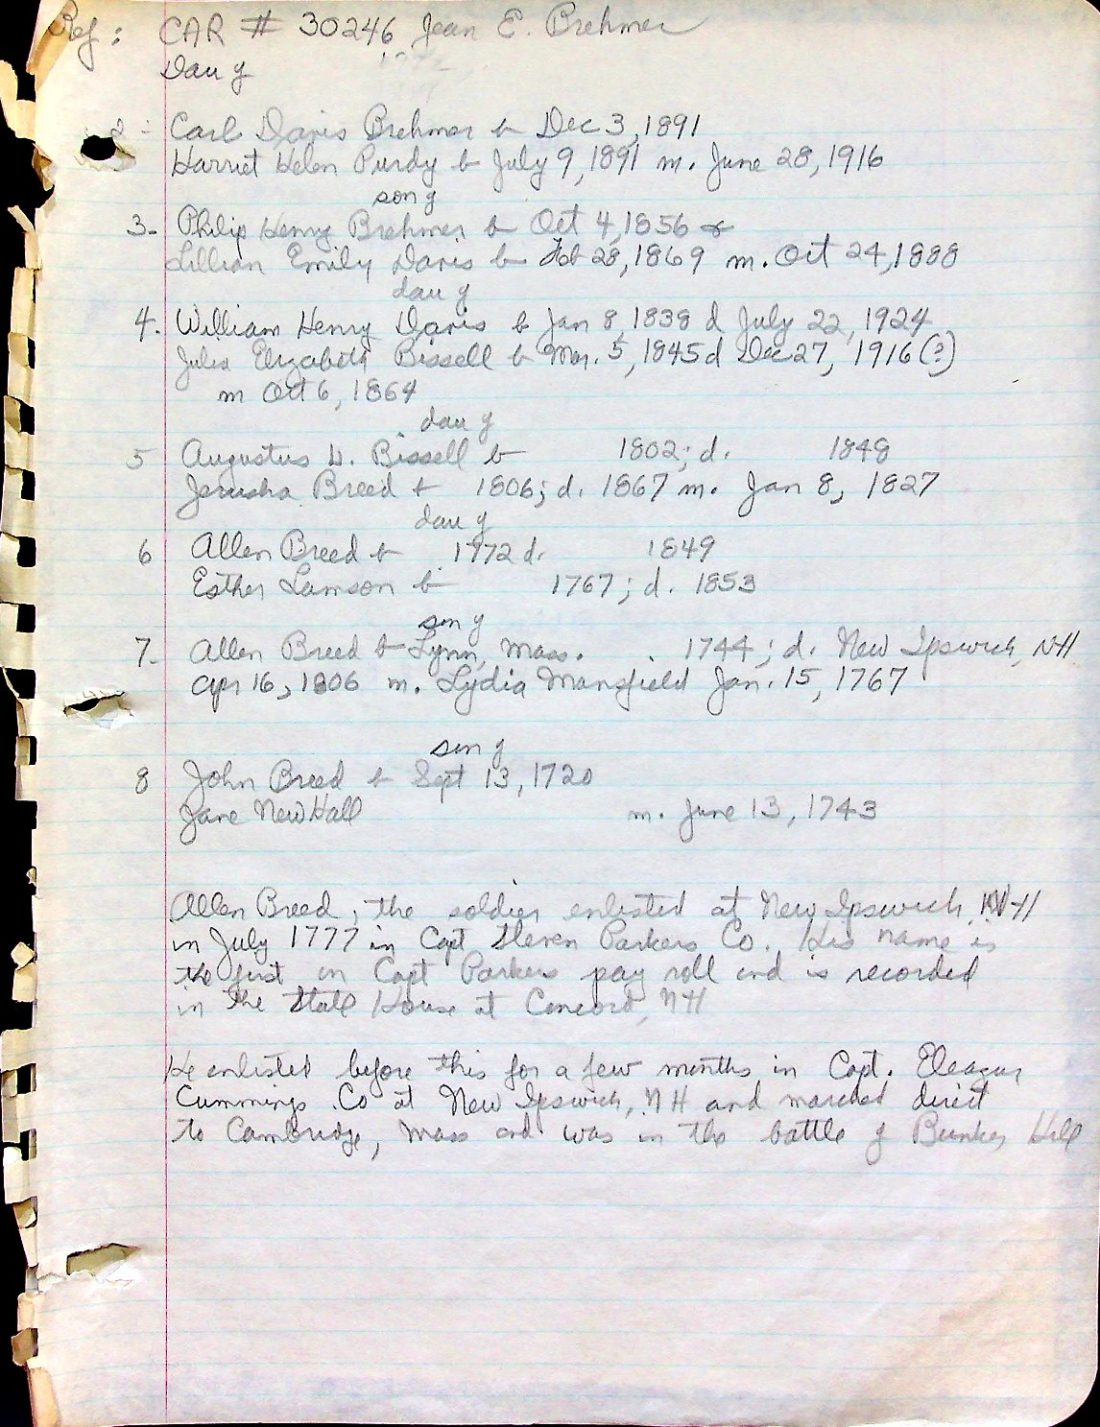 Ref: CAR # 30246 Jean E. Brehmer
Dau of
2- Carl Davis Brehmer b Dec 3, 1891
Harriet Helen Purdy b July 9, 1891 m. June 28, 1916
son of
3- Philip Henry Brehmer b Oct 4, 1856
Lillian Emily Davis b Feb 28, 1869 m. Oct 24, 1888
dau of
4. William Henry Davis b Jan 8, 1838 d July 22, 1924
Julia Elizabeth Bissell b Mar. 5, 1845 d Dec 27, 1916 (?)
m Oct 6, 1864
dau of
5 Augustus D. Bissell b 1802; d. 1848
Jerusha Breed b 1806; d. 1867 m. Jan 8, 1827
dau of
6 Allen Breed b 1772 d. 1849
Esther Lamson b 1767; d. 1853
son of
7- Allen Breed b Lynn, Mass. 1744; d. New Ipswich, NH
Apr 16, 1806 m. Lydia Mansfield Jan. 15, 1767
son of
8 John Breed b Sept 13, 1720
Jane NewHall m. June 13, 1743
Allen Breed, the soldier enlisted at New Ipswich, NH
in July 1777 in Capt Steven Parkers Co. His name is
the first on Capt Parkers pay roll and is recorded
in the State House at Concord, NH
He enlisted before this for a few months in Capt. Eleazur
Cummings Co at New Ipswich, NH and marched direct
to Cambridge, Mass and was in the battle of Bunker Hill